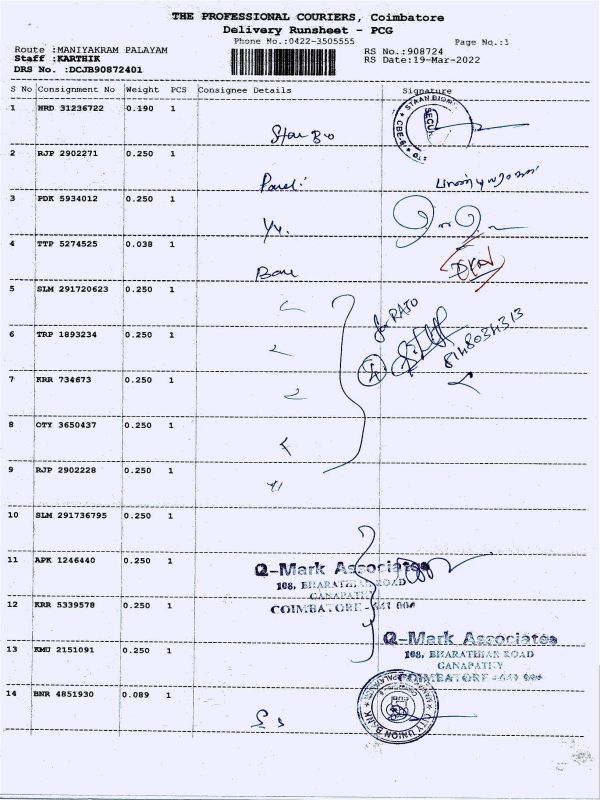 THE PROFESSIONAL COURIERS, Coimbatore
Delivery Runsheet - PCG
Phone No.:0422-3505555
Page No.:1
Route :MANIYAKRAM PALAYAM
RS No.:908724
Staff :KARTHIK
RS Date:19-Mar-2022
DRS No. :DCJB90872401
S No Consignment No Weight PCS Consignee Details Signature
1 HRD 31236722 0.190 1
2 RJP 2902271 0.250 1
3 PDK 5934012 0.250 1
4 TTP 5274525 0.038 1
5 SLM 291720623 0.250 1
for RAJO
6 TRP 1893234 0.250 1
8148034313
7 KRR 734673 0.250 1
8 OTY 3650437 0.250 1
9 RJP 2902228 0.250 1
10 SLM 291736795 0.250 1
11 APK 1246440 0.250 1
Q-Mark Associates
108, BHARATHIAR ROAD
GANAPATHY
COIMBATORE - 641 006
12 KRR 5339578 0.250 1
Q-Mark Associates
108, BHARATHIAR ROAD
GANAPATHY
COIMBATORE - 641 006
13 KMU 2151091 0.250 1
14 BNR 4851930 0.089 1
CITY UNION BANK